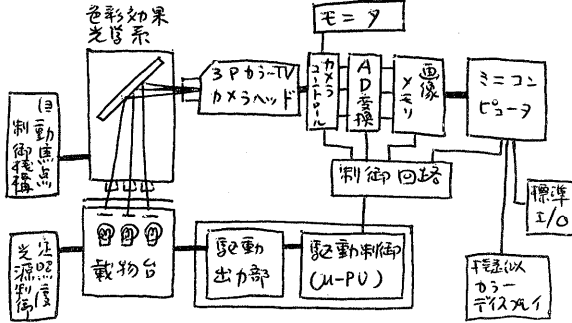 色彩効果
光学系
モニタ
3PカラーTV
カメラヘッド
カメラ
コントロール
AD変換
画像
メモリ
ミニコン
ピュータ
自動焦点
制御機構
制御回路
標準
I/O
定照度
光源制御
載物台
駆動
出力部
駆動制御
(μ-PU)
カラー
ディスプレイ